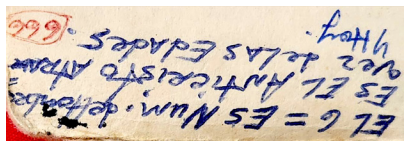 EL 6 = ES Num. del Hombre
ES EL ANTICRISTO ATRA
vez de LAS EDADES.
y Hoy.
666